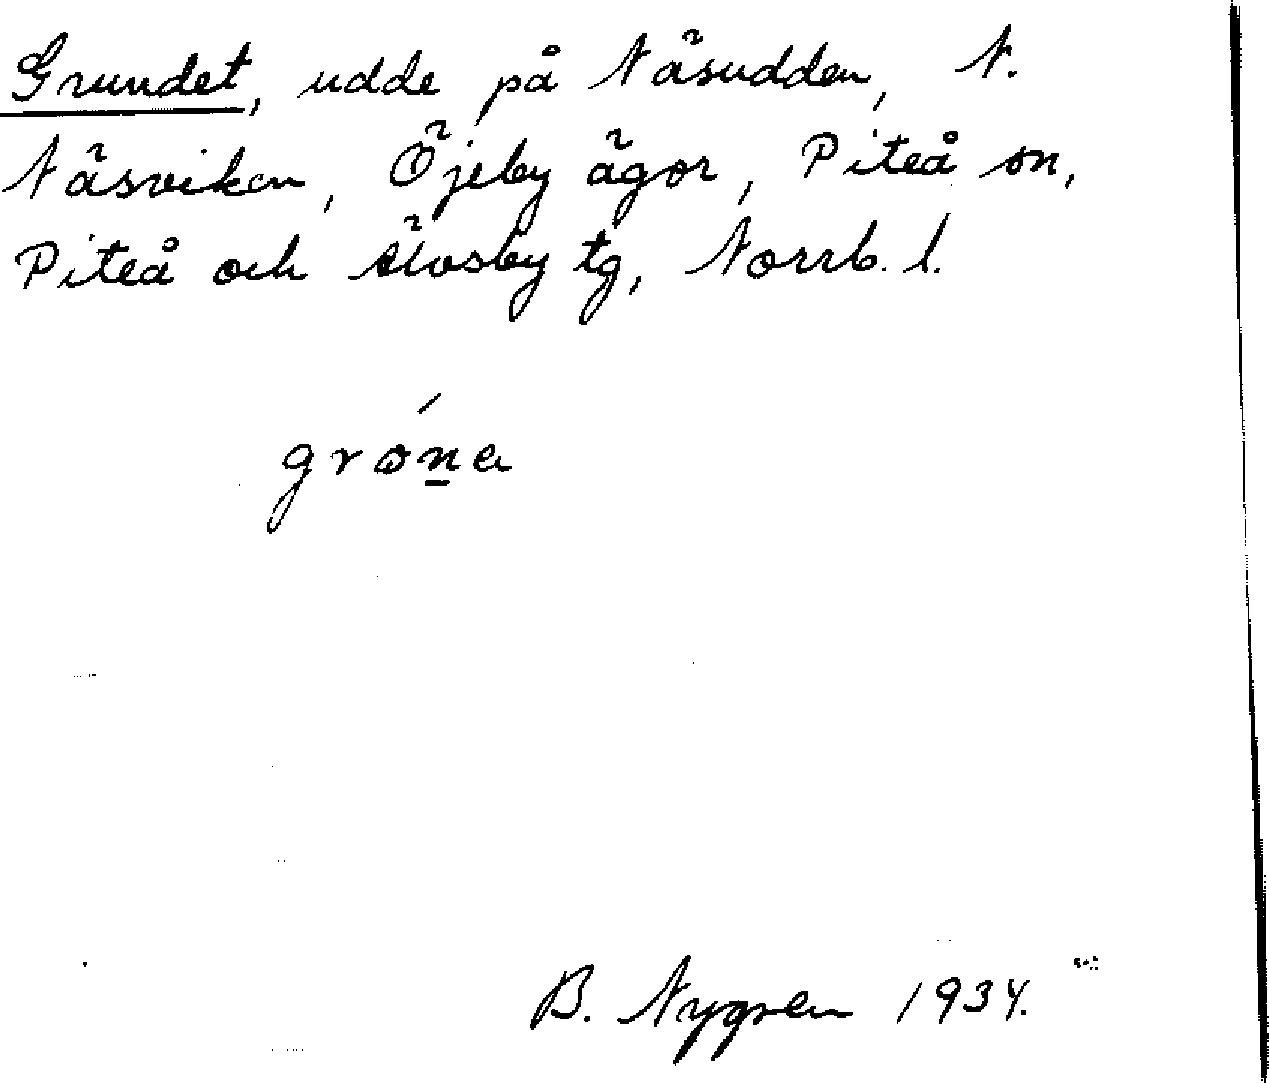 Grundet, udde på Näsudden, N.
Näsviken, Öjeby ägor, Piteå sn,
Piteå och Älvsby tg, Norrb. l.
gróna
B. Nygren 1934.